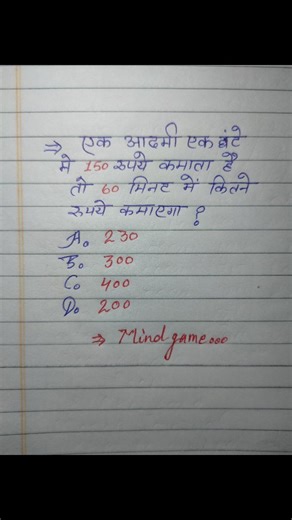 ⇒ एक आदमी एक घंटे
मे 150 रुपये कमाता है
तो 60 मिनट में कितने
रुपये कमाएगा ?
A. 230
B. 300
C. 400
D. 200
⇒ Mind game...